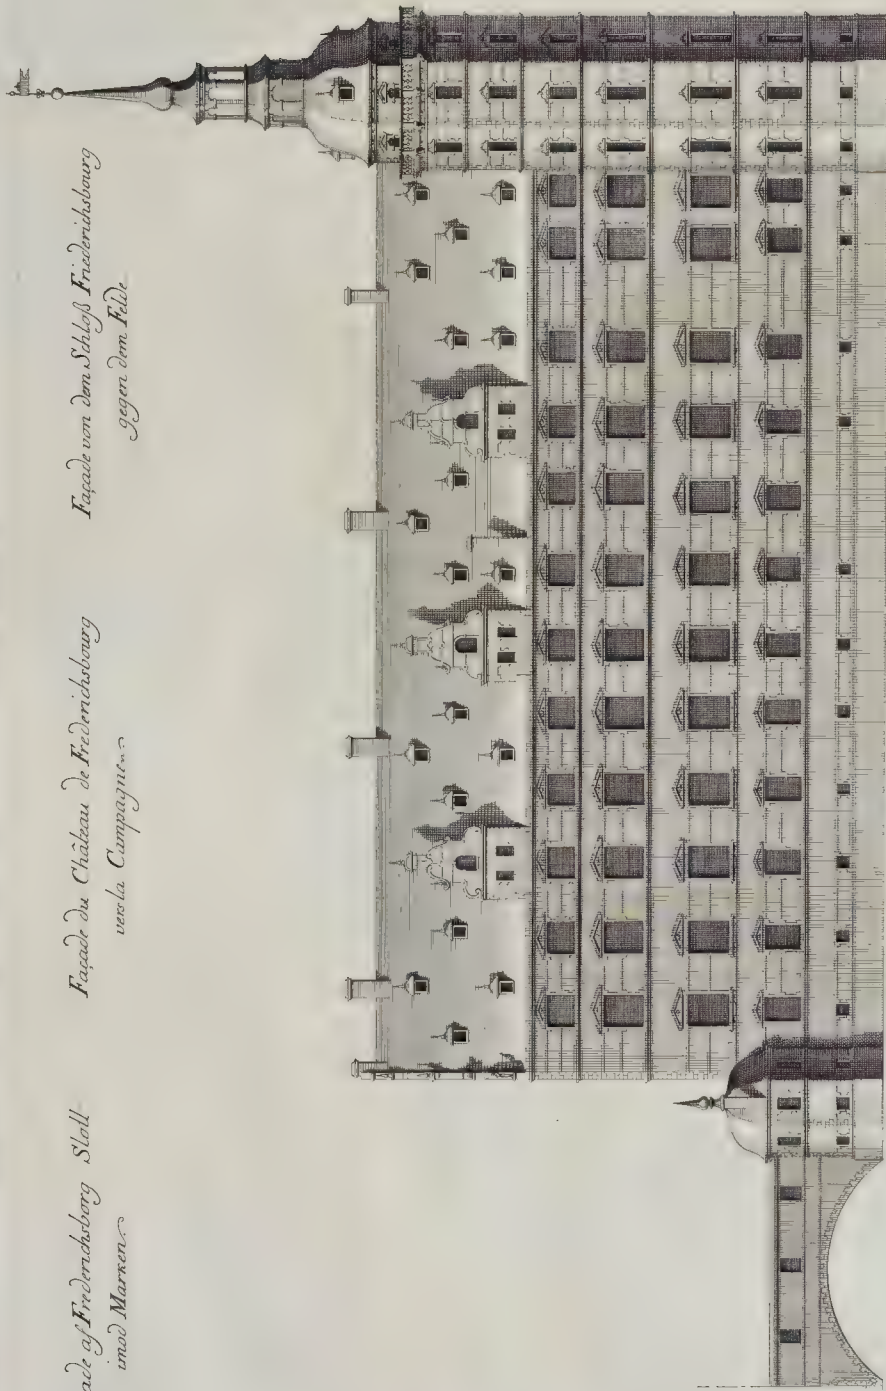 ade af Frederichsborg Slott
imod Marken
Façade du Château de Frederichsbourg
vers la Campagne
Façade von dem Schloß Friederichsbourg
gegen dem Felde